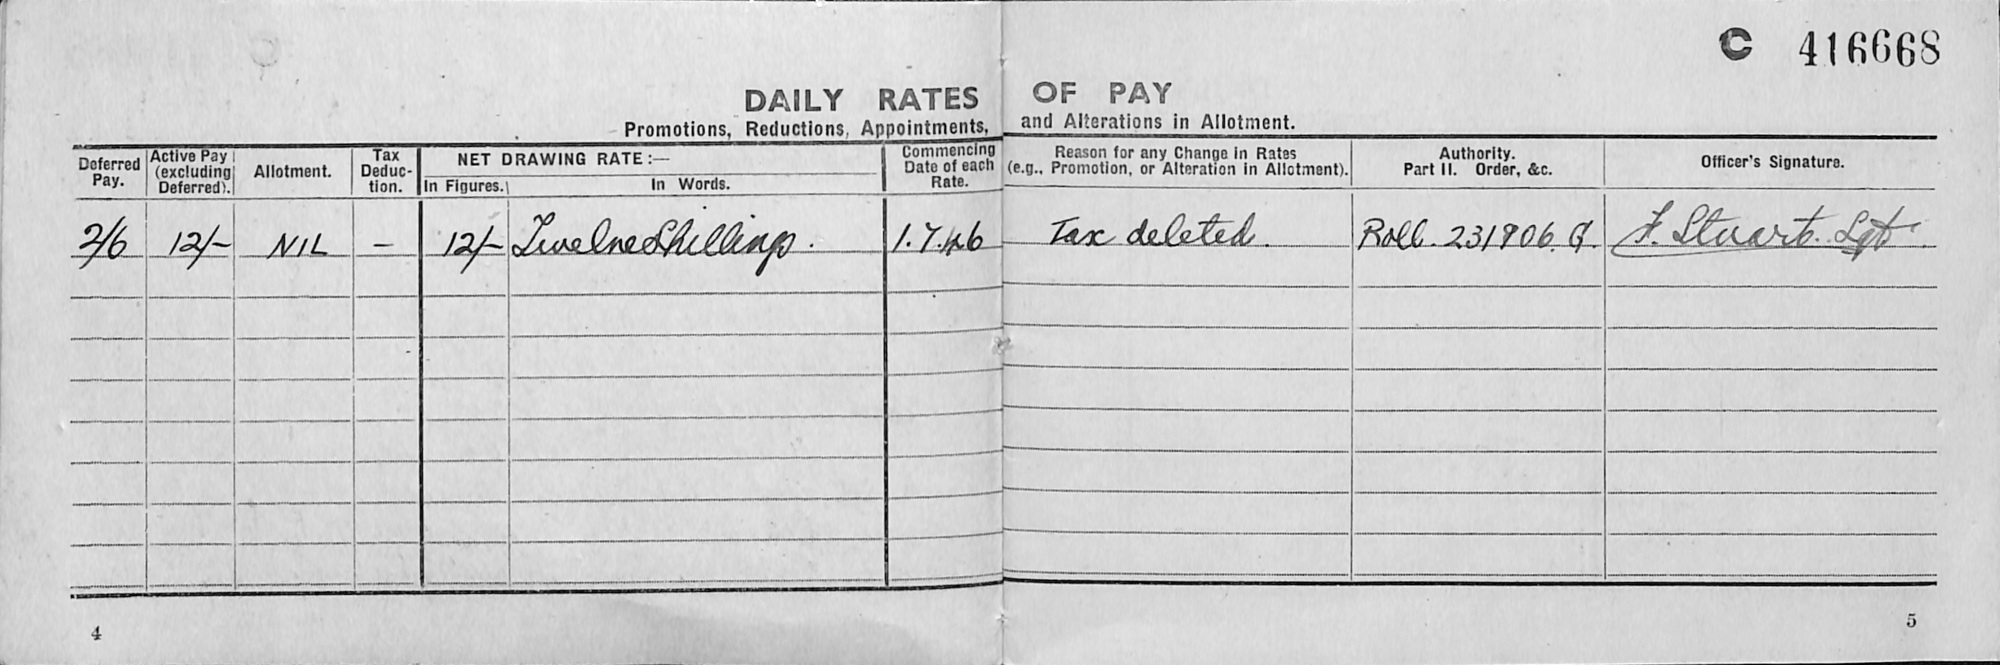 C 416668
DAILY RATES OF PAY
Promotions, Reductions, Appointments, and Alterations in Allotment.
Deferred Pay. Active Pay (excluding Deferred). Allotment. Tax Deduc-tion. NET DRAWING RATE:— In Figures. In Words. Commencing Date of each Rate. Reason for any Change in Rates (e.g., Promotion, or Alteration in Allotment). Authority. Part II. Order, &c. Officer's Signature.
2/6 12/- NIL - 12/- Twelve Shillings. 1.7.46 Tax deleted. Roll. 231906 F. Stuart.
4 5